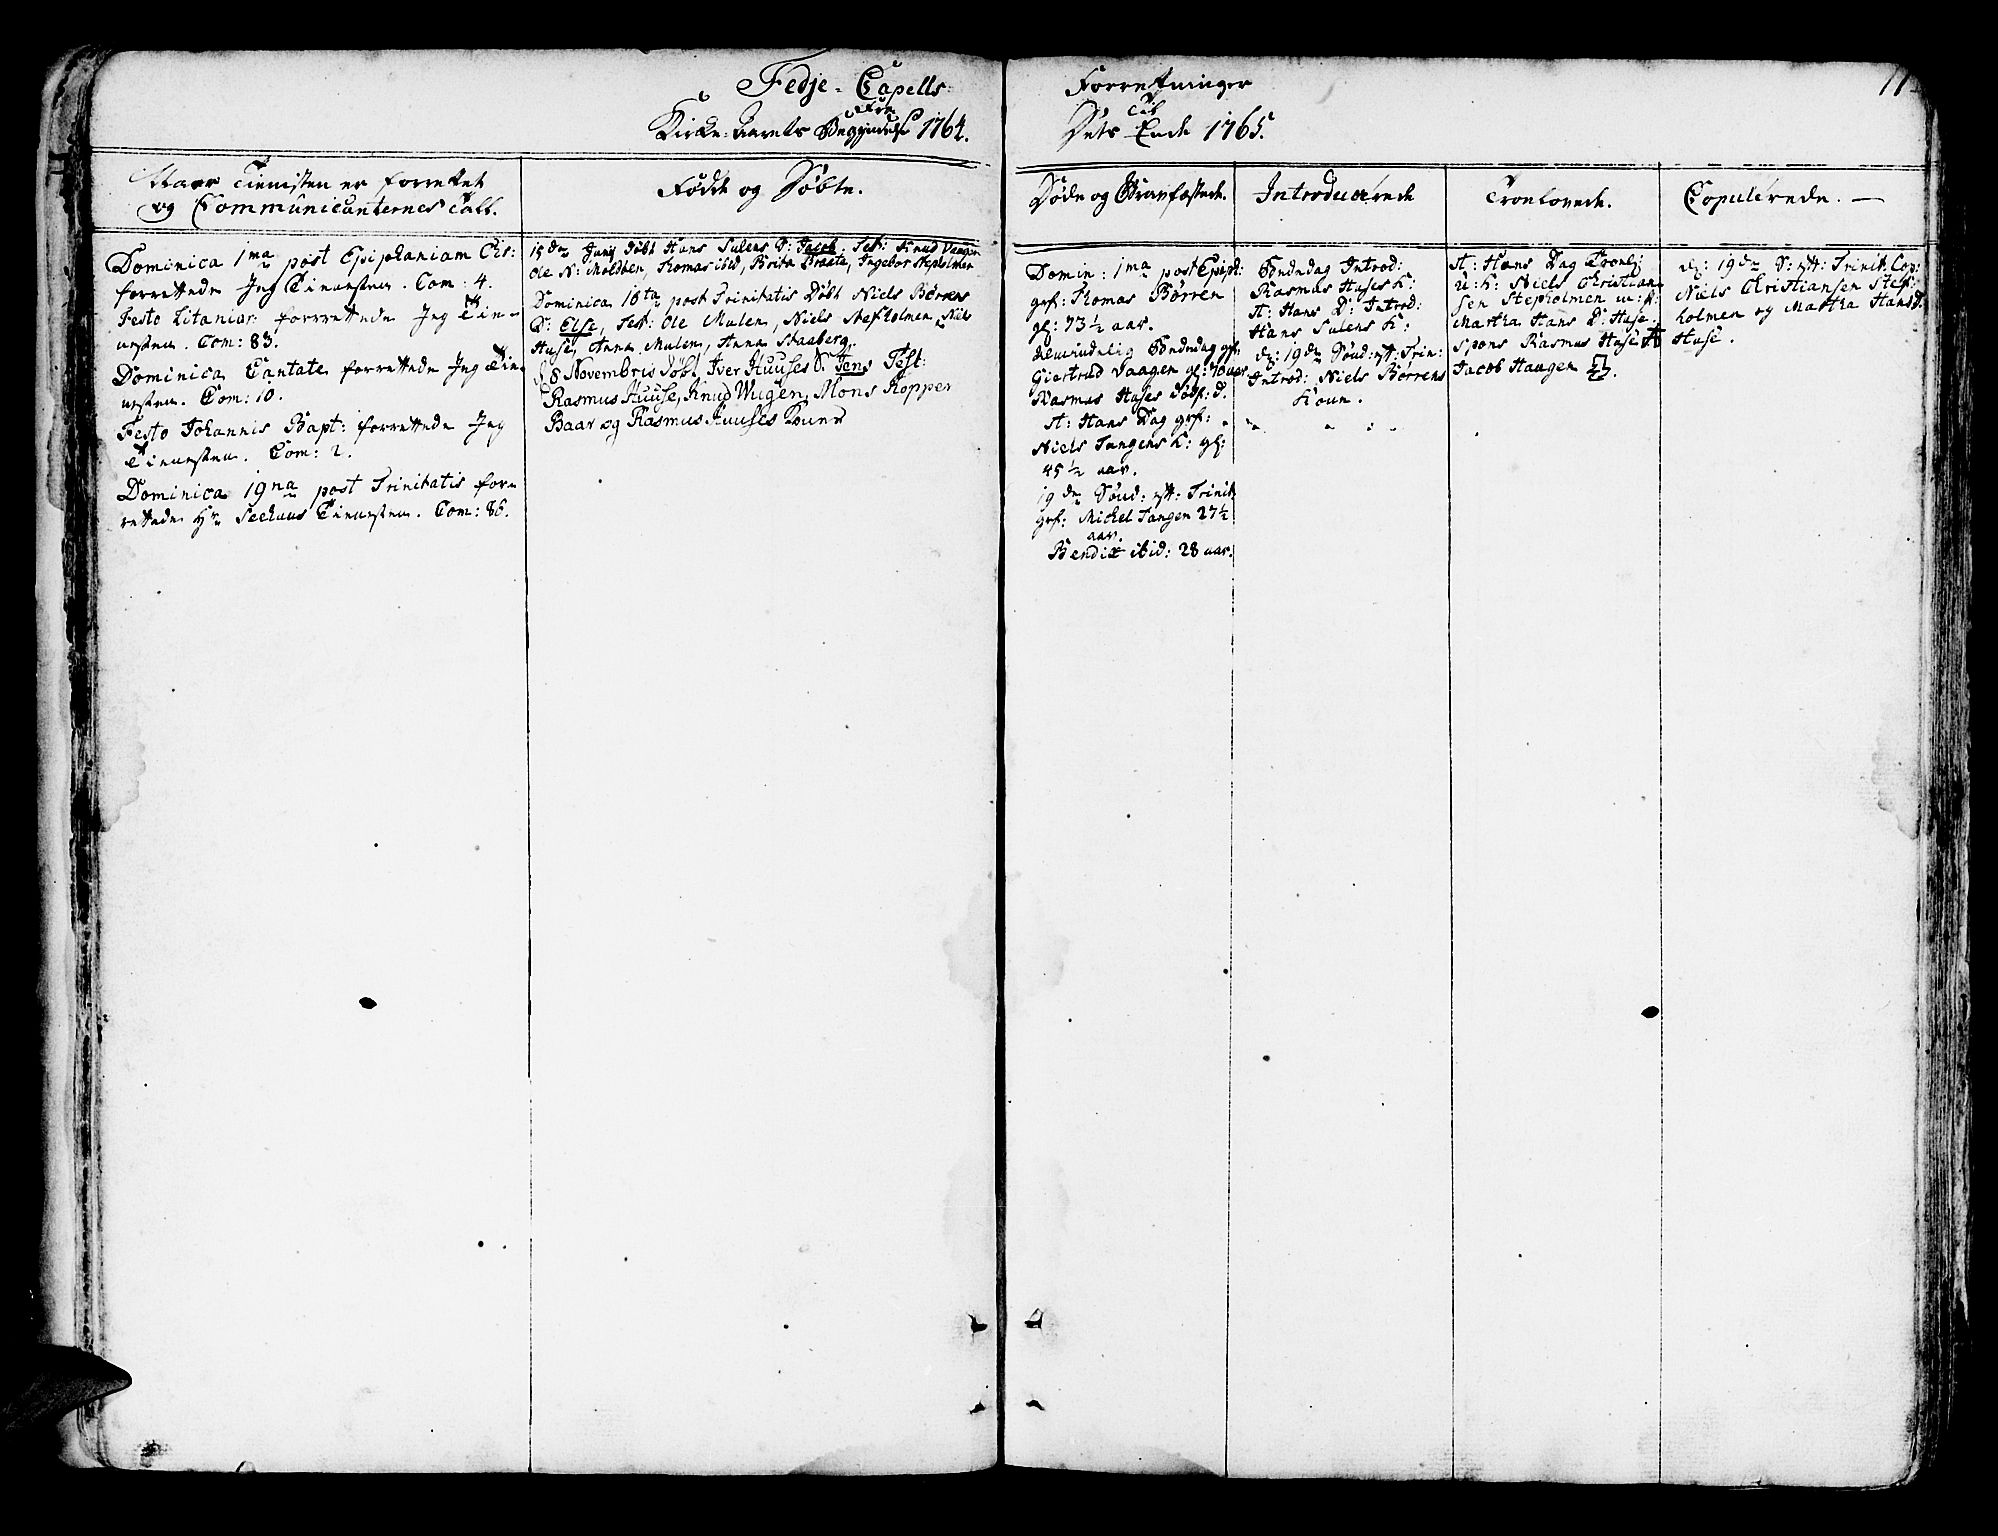 Fedje-Capells
Kirke-Aarets Begyndelse 1764.
Fra
Forretninger
Til
Dets Ende 1765.
Naar Tienisten er forrettet
og Communicanternes Tall.
Dominica 1ma post Epiphaniam
forrettede Jeg Tienesten. Com: 4.
Festo Litaniar: forrettede Jeg Tie-
nesten. Com: 83.
Dominica Cantate forrettede Jeg Tie-
nesten. Com: 10.
Festo Johannis Bapt: forrettede Jeg
Tienesten. Com: 2.
Dominica 19na post Trinitatis for-
rettede Hr Seehuus Tienesten. Com: 86.
Födde og Döbte.
15de Junij Döbt Hans Sulens S: Jacob. Test: Knud Vaagen
Ole N: Moldben, Thomas ibid, Brita Braate, Ingebor Stepholmen
Dominica 16ta post Trinitatis Döbt Niels Börrens
D: Else, Test: Ole Mulen, Niels Stefholmen, Niels
Huse, Anna Mulen, Anna Skaaberg.
d 8 Novembris Döbt Iver Huuses S. Jens Test:
Rasmus Huuse, Knud Waagen, Mons Kopper
Baar og Rasmus Huuses Kone
Döde og Gravfæstede.
Domin: 1ma post Epiph:
grf: Thomas Börren
gl: 73½ aar.
Almindelig Bededag grf:
Giertrud Vaagen gl: 70 aar
Rasmus Huses Dödf: d.
St: Hans Dag grf:
Niels Tangens K: gl:
45½ aar.
19de Sönd: eft: Trinit
grf: Michel Tangen 27½
aar.
Bendix ibid: 28 aar.
Introducerede
Bededag Introd:
Rasmus Huses K:
St: Hans D: Introd:
Hans Sulens K:
d: 19de Sönd: eft: Trin:
Introd: Niels Börrens
Kone.
Troelovede.
St: Hans Dag Troel:
U: K: Niels Christian-
sen Stepholmen m: P:
Martha Hans D: Huse.
Spons Rasmus Huse
Jacob Haagen
Copulerede.
d: 19de S: eft: Trinit. Cop:
Niels Christiansen Stef-
holmen og Martha Hansd.
Huse.